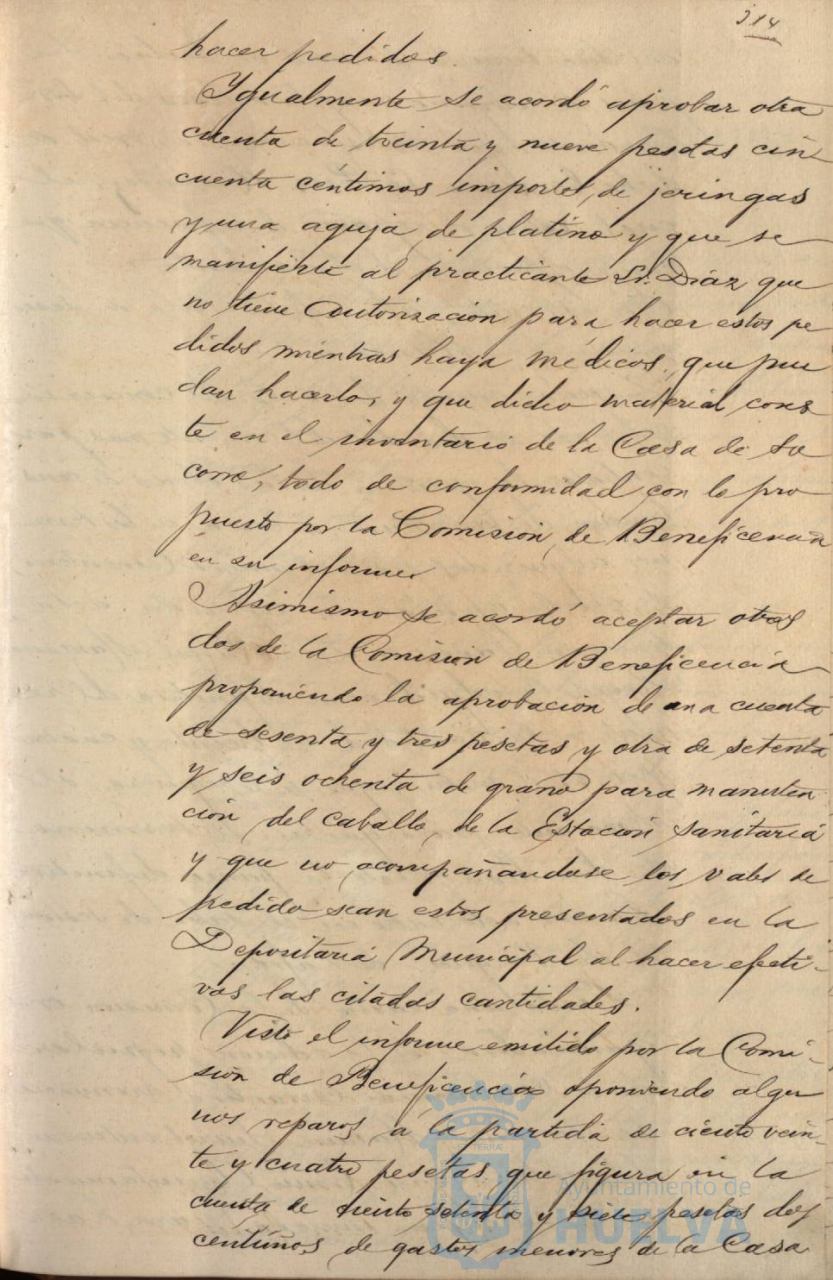 314
hacer pedidos.
Igualmente se acordó aprobar otra
cuenta de treinta y nueve pesetas cin
cuenta céntimos importe, de jeringas
y una aguja de platino y que se
manifieste al practicante Sr. Díaz que
no tiene autorización para hacer estos pe
didos mientras haya médicos, que pue
dan hacerlo, y que dicho material cons
te en el inventario de la Casa de So
corro, todo de conformidad con lo pro
puesto por la Comisión de Beneficencia
en su informe.
Asimismo se acordó aceptar otros
dos de la Comisión de Beneficencia
proponiendo la aprobación de una cuenta
de sesenta y tres pesetas y otra de setenta
y seis ochenta de grano para manuten
ción del caballo de la Estación sanitaria
y que no acompañandose los vales de
pedido sean estos presentados en la
Depositaría Municipal al hacer efecti-
vas las citadas cantidades.
Visto el informe emitido por la Comi-
sión de Beneficencia oponiendo algu
nos reparos á la partida de ciento vein-
te y cuatro pesetas que figura en la
cuenta de ciento setenta y siete pesetas dos
centimos de gastos menores de la Casa
Ayuntamiento de
HUELVA